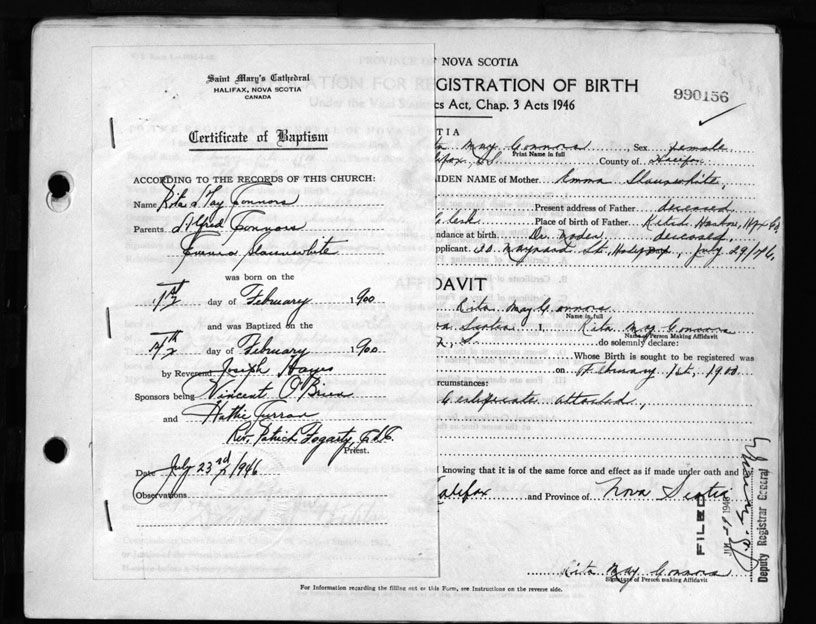 Saint Mary's Cathedral
HALIFAX, NOVA SCOTIA
CANADA
Certificate of Baptism
ACCORDING TO THE RECORDS OF THIS CHURCH:
Name Rita May Connors
Parents Alfred Connors
Emma Slaunwhite
was born on the
1st day of February 1900
and was Baptized on the
day of February 1900
by Reverend Joseph Hayes
Sponsors being Vincent O'Brien
and Hattie Curran
Rev. Patrick Fogarty,
Priest.
Date July 23rd 1946
Observations
NOVA SCOTIA
GISTRATION OF BIRTH
cs Act, Chap. 3 Acts 1946
990156
TIA
May Connors, Sex female
Print Name in full
County of Halifax
AIDEN NAME of Mother Emma Slaunwhite,
Present address of Father deceased
Clerk Place of birth of Father Harbour, Hfx Co
ndance at birth Dr. deceased,
pplicant 30 Maynard St., Halifax, July 29/46,
DAVIT
Rita May Connors
Name in full
Scotia I, Rita May Connors
Name of Person Making Affidavit
do solemnly declare:
Whose Birth is sought to be registered was
on February 1st, 1900
circumstances:
Certificate attached,
knowing that it is of the same force and effect as if made under oath and
Halifax and Province of Nova Scotia
FILED
1946
Deputy Registrar General
Rita May Connors
Signature of Person making Affidavit
For Information regarding the filling out of this Form, see Instructions on the reverse side.